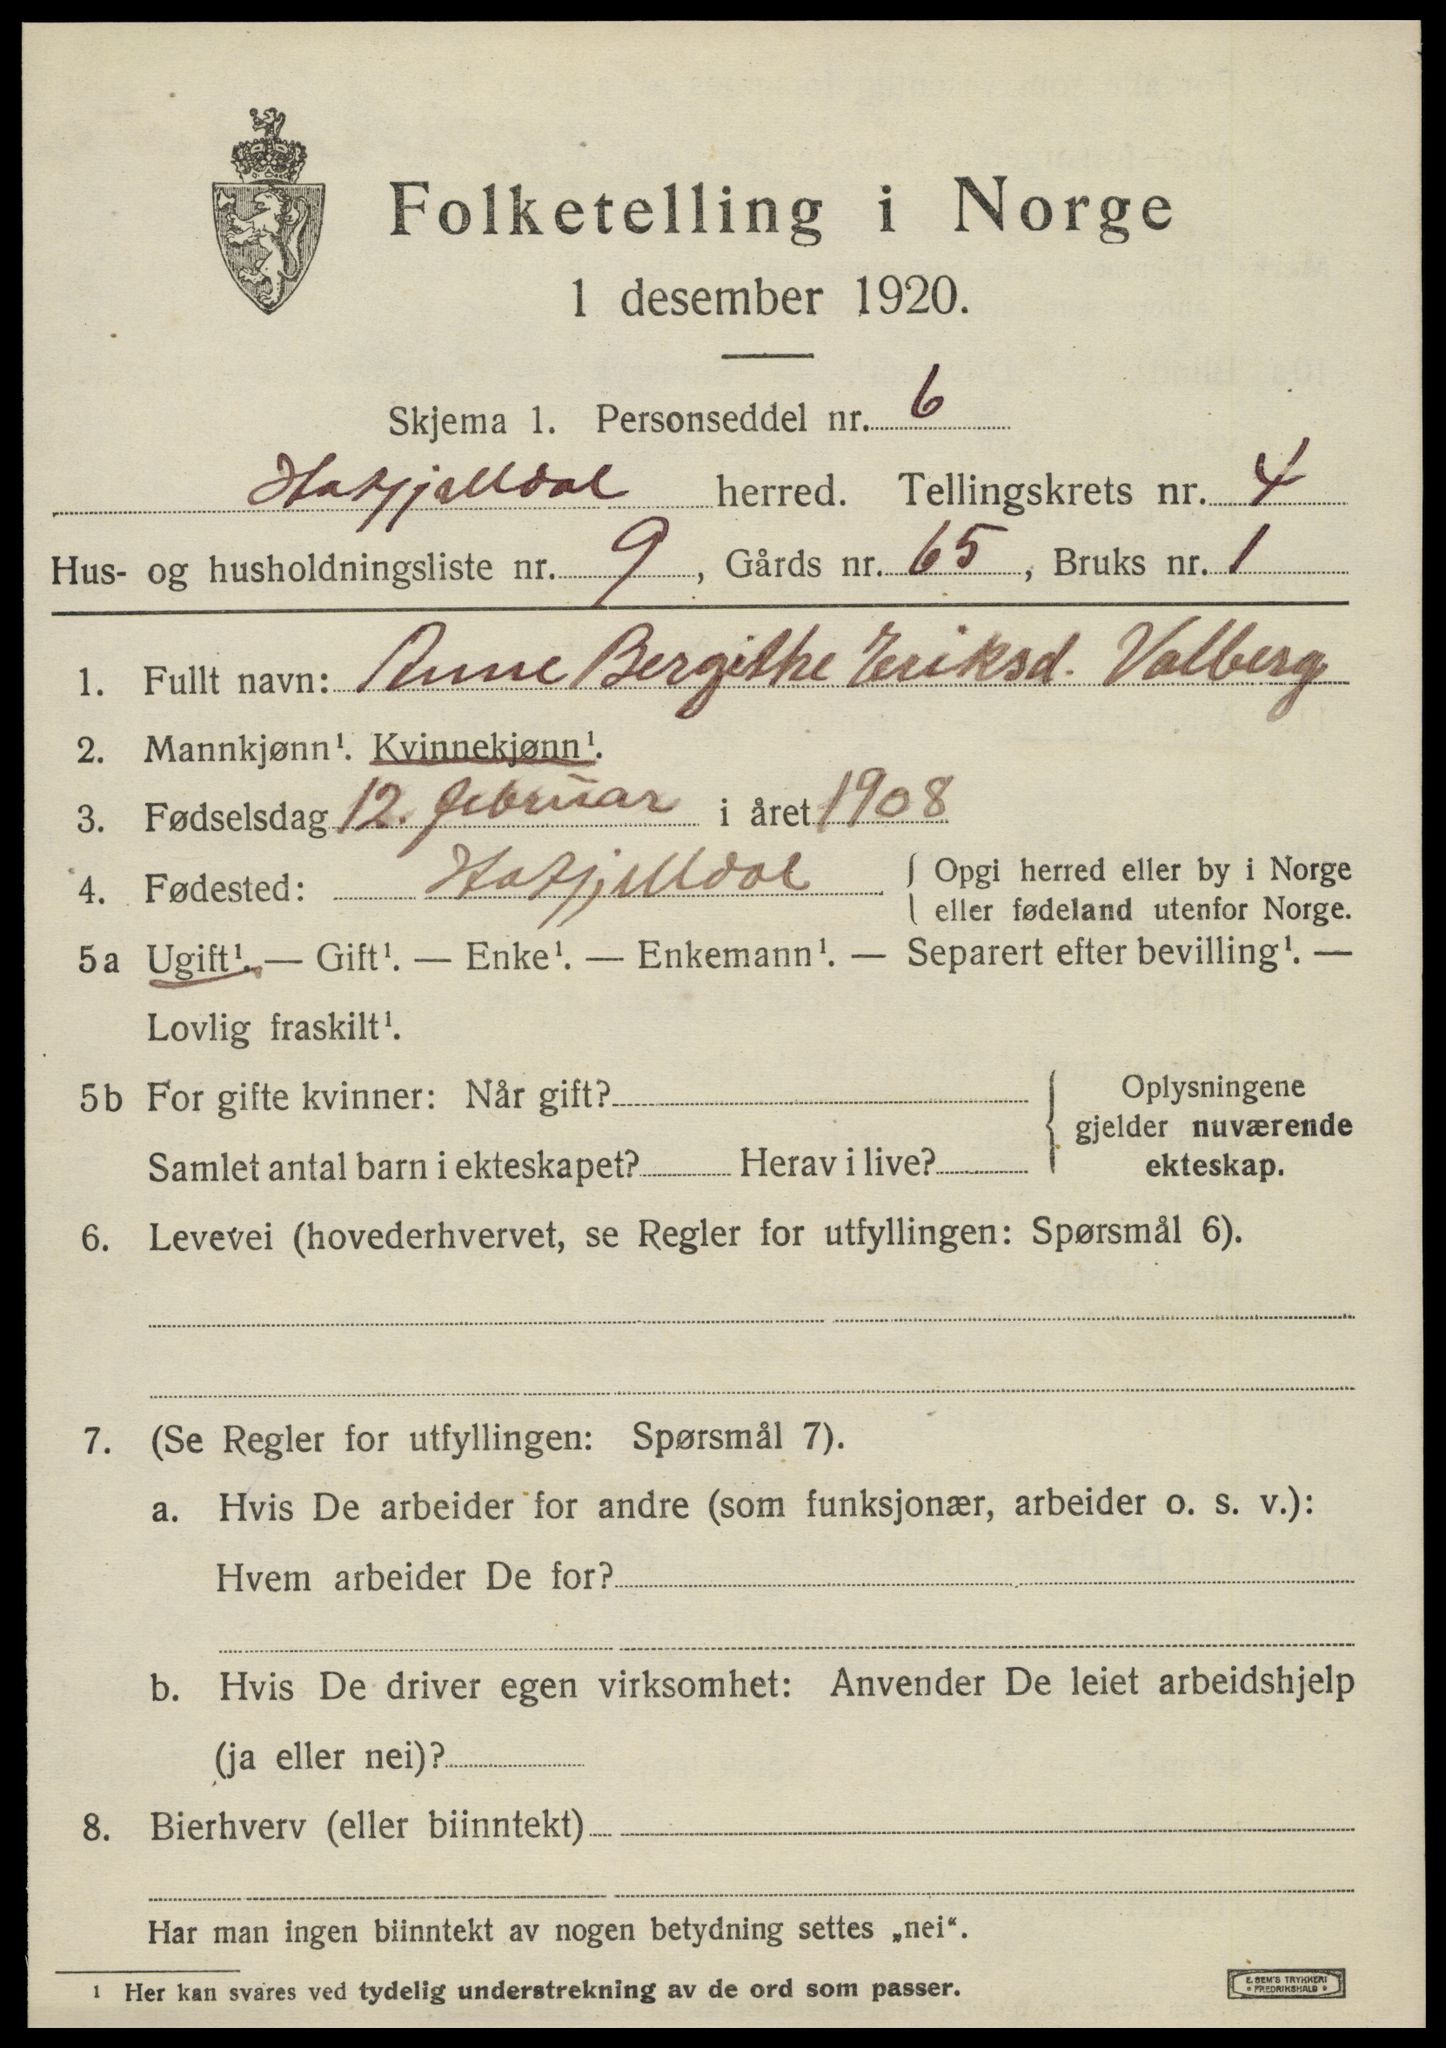 Folketelling i Norge
1 desember 1920.
Skjema 1. Personseddel nr. 6
Hatfjelldal herred. Tellingskrets nr. 4
Hus- og husholdningsliste nr. 9, Gårds nr. 65, Bruks nr. 1
1. Fullt navn: Anne Bergithe Eriksd. Valberg
2. Mannkjønn¹. Kvinnekjønn¹.
3. Fødselsdag 12. februar i året 1908
4. Fødested: Hatfjelldal { Opgi herred eller by i Norge
eller fødeland utenfor Norge.
5a Ugift¹. — Gift¹. — Enke¹. — Enkemann¹. — Separert efter bevilling¹. —
Lovlig fraskilt¹.
5b For gifte kvinner: Når gift? { Oplysningene
gjelder nuværende
Samlet antal barn i ekteskapet? Herav i live? ekteskap.
6. Levevei (hovederhvervet, se Regler for utfyllingen: Spørsmål 6).
7. (Se Regler for utfyllingen: Spørsmål 7).
a. Hvis De arbeider for andre (som funksjonær, arbeider o. s. v.):
Hvem arbeider De for?
b. Hvis De driver egen virksomhet: Anvender De leiet arbeidshjelp
(ja eller nei)?
8. Bierhverv (eller biinntekt)
Har man ingen biinntekt av nogen betydning settes „nei“.
¹ Her kan svares ved tydelig understrekning av de ord som passer.
E. SEM'S TRYKKERI
• FREDRIKSHALD •